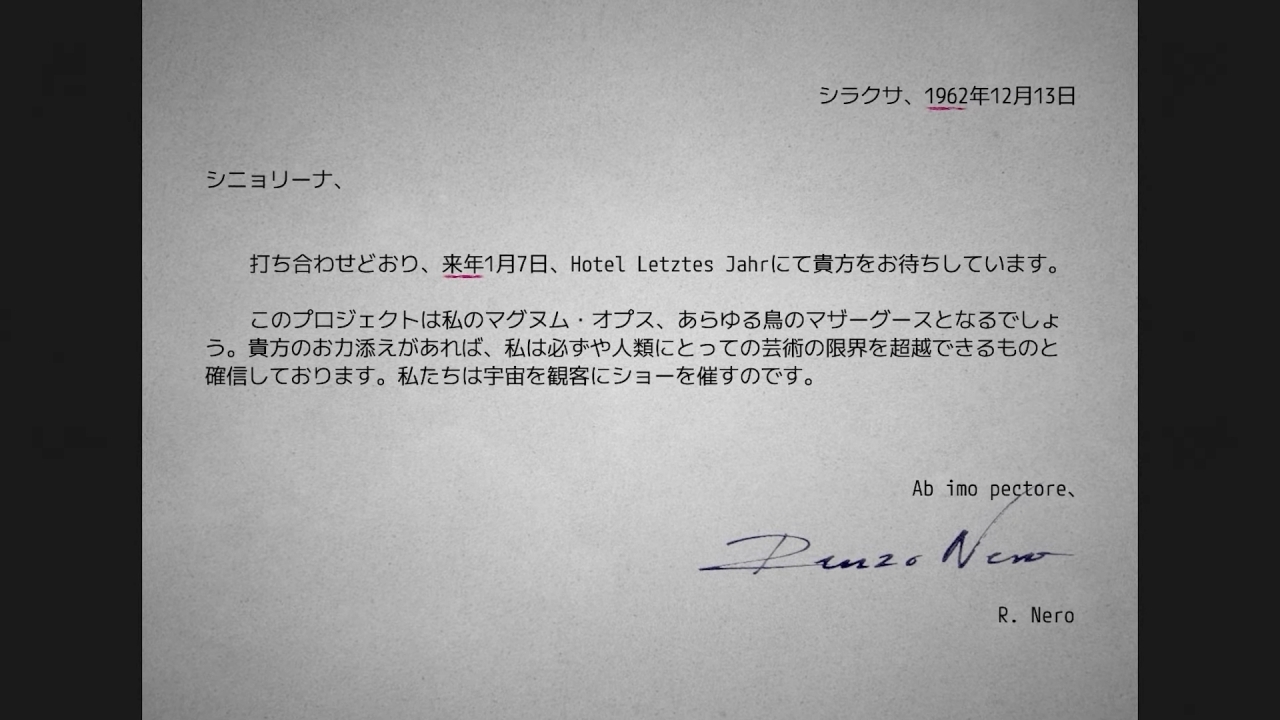 シラクサ、1962年12月13日
シニョリーナ、
打ち合わせどおり、来年1月7日、Hotel Letztes Jahrにて貴方をお待ちしています。
このプロジェクトは私のマグヌム・オプス、あらゆる鳥のマザーグースとなるでしょ
う。貴方のお力添えがあれば、私は必ずや人類にとっての芸術の限界を超越できるものと
確信しております。私たちは宇宙を観客にショーを催すのです。
Ab imo pectore、
Renzo Nero
R. Nero